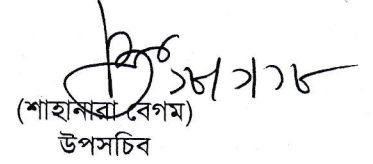 ১৮/১/১৮
(শাহানারা বেগম)
উপসচিব